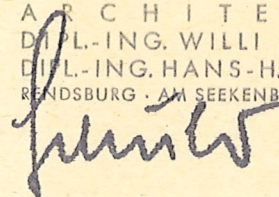 A R C H I T E
DIPL.-ING. WILLI
DIPL.-ING. HANS-H
RENDSBURG · AM SEEKENB